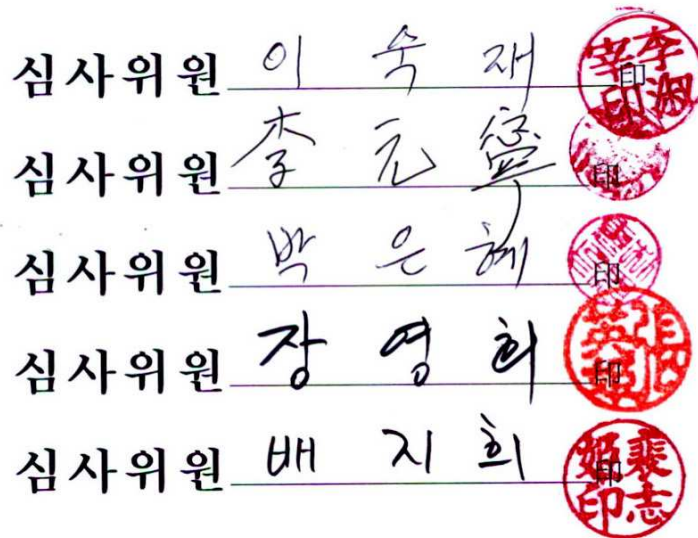 심사위원 이 숙 재 印
심사위원 李 元 寧 印
심사위원 박 은 혜 印
심사위원 장 영 희 印
심사위원 배 지 희 印